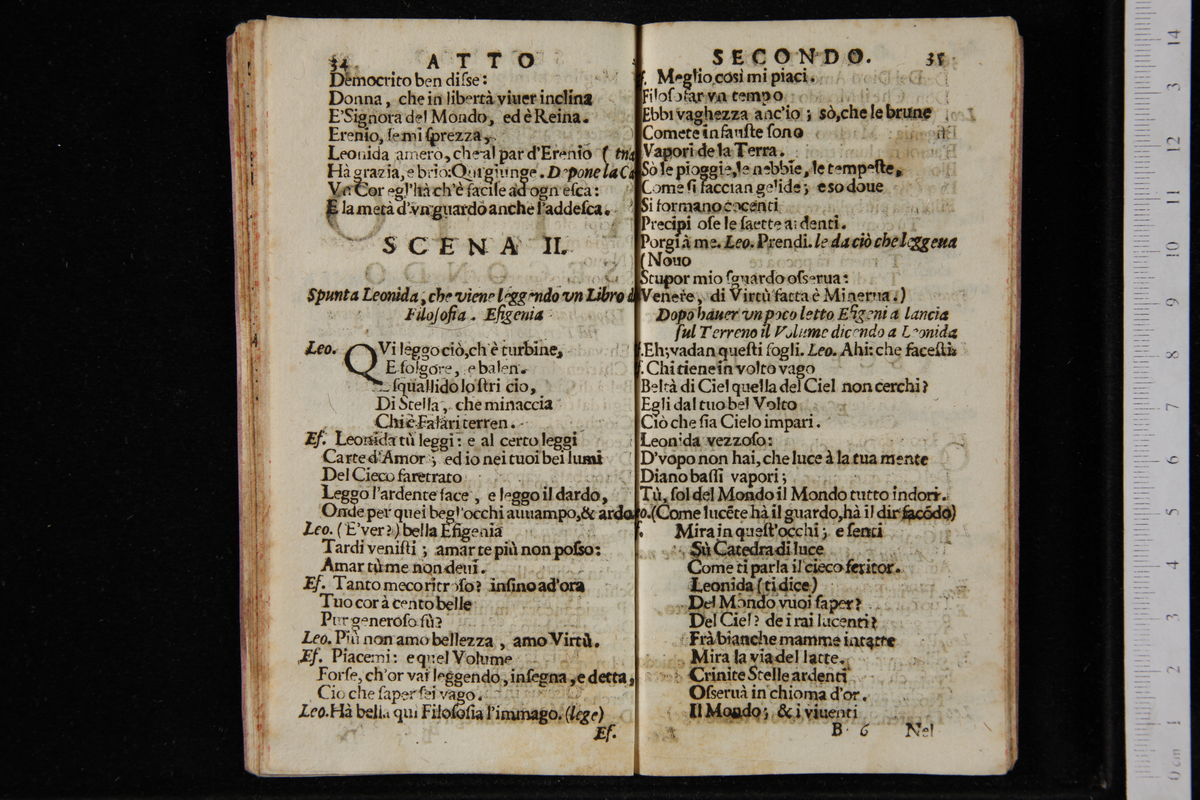 34 ATTO
Democrito ben diſse:
Donna, che in libertà viuer inclina
E'Signora del Mondo, ed è Reina.
Erenio, ſe mi ſprezza,
Leonida amero, che al par d'Erenio (
Hà grazia, e brio: Qui giunge. Depone la
Vn Cor egl'hà ch'è facile ad ogn eſca:
E la metà d'vn guardo anche l'addeſca.
SCENA II.
Spunta Leonida, che viene leggendo vn Libro
Filoſofia. Efigenia
Leo. QVi leggo ciò, ch'è turbine,
E folgore, e balen.
ſquallido loſtri cio,
Di Stella, che minaccia
Chi è Falari terren.
Ef. Leonida tù leggi: e al certo leggi
Carte d'Amor; ed io nei tuoi bei lumi
Del Cieco faretrato
Leggo l'ardente face, e leggo il dardo,
Onde per quei begl'occhi auuampo, & ardo
Leo. (E'ver?) bella Efigenia
Tardi veniſti; amarte più non poſso:
Amar tù me non deui.
Ef. Tanto meco ritroſo? inſino ad'ora
Tuo cor à cento belle
Pur generoſo fù?
Leo. Più non amo bellezza, amo Virtù.
Ef. Piacemi: e quel Volume
Forſe, ch'or vai leggendo, inſegna, e detta,
Ciò che ſaper ſei vago.
Leo. Hà bella qui Filoſofia l'immago. (lege)
Ef.
SECONDO. 35
f. Meglio così mi piaci.
Filoſofar vn tempo
Ebbi vaghezza anc'io; sò, che le brune
Comete infauſte ſono
Vapori de la Terra.
Sò le pioggie, le nebbie, le tempeſte,
Come ſi faccian gelide; e so doue
Si formano cocenti
Precipi oſe le ſaette ardenti.
Porgi à me. Leo. Prendi. le da ciò che leggeua
(Nouo
Stupor mio ſguardo oſserua:
Venere, di Virtù fatta è Minerua.)
Dopo hauer vn poco letto Efigenia lancia
ſul Terreno il Volume dicendo a Leonida
f. Eh; vadan queſti fogli. Leo. Ahi: che faceſti?
f. Chi tiene in volto vago
Beltà di Ciel quella del Ciel non cerchi?
Egli dal tuo bel Volto
Ciò che ſia Cielo impari.
Leonida vezzoſo:
D'vopo non hai, che luce à la tua mente
Diano baſſi vapori;
Tù, ſol del Mondo il Mondo tutto indori.
o. (Come lucẽte hà il guardo, hà il dir facódo)
f. Mira in queſt'occhi; e ſenti
Sù Catedra di luce
Come ti parla il cieco feritor.
Leonida (ti dice)
Del Mondo vuoi ſaper?
Del Ciel? de i rai lucenti?
Frà bianche mamme intatte
Mira la via del latte.
Crinite Stelle ardenti
Oſseruà in chioma d'or.
Il Mondo; & i viuenti
B 6 Nel